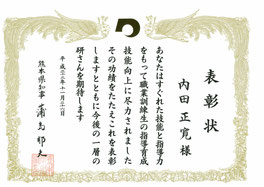 表彰状
内田正寛様
あなたはすぐれた技能と指導力
をもって職業訓練生の指導育成
技能向上に尽力されました
その功績をたたえこれを表彰
しますとともに今後の一層の
研さんを期待します
平成二十二年十一月二十一日
熊本県知事 蒲島郁夫